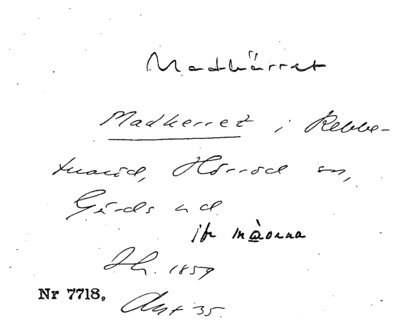 Madkärret
Madkerret i Rebbe-
tuaröd, Hörröd sn,
Gärds hd
jfr màarna
Jh. 1859
Nr 7718. Akt 35.